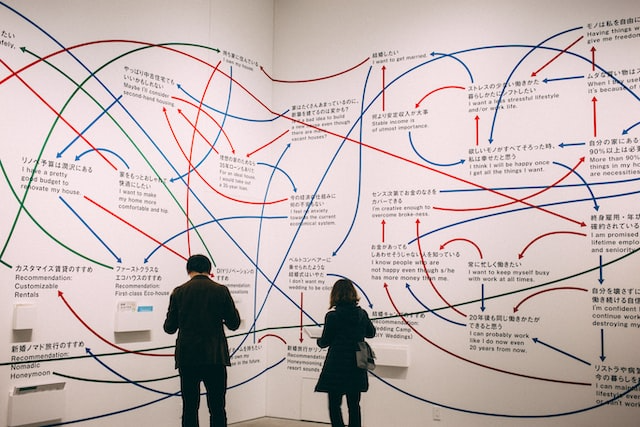 たい
safely.
持ち家に住んでいる
I own my house.
やっぱり中古住宅でも
いいかもしれない
Maybe I'll consider
second-hand housing.
家はたくさんあまっているのに、
新築を建てるのは変かも?
a bad idea to build
a new house even though
there are many
vacant houses?
理想の家のためなら
35年ローンもありだ
For an ideal house,
I would take out
a 35-year loan.
リノベ予算は潤沢にある
I have a pretty
good budget to
renovate my house.
家をもっとおしゃれで
快適にしたい
I want to make
my home more
comfortable and hip.
今の経済の仕組みに
何の不安もない
I feel no anxiety
towards the current
economical system.
カスタマイズ賃貸のすすめ
Recommendation:
Customizable
Rentals
ファーストクラスな
エコハウスのすすめ
Recommendation:
First-class Eco-house
DIYリノベーション
のすすめ
ヘルトコンベアーに
乗せられたような
結婚式はイヤだ
I don't want my
wedding to be
新婚ノマド旅行のすすめ
Recommendation:
Nomadic
Honeymoon
in the future.
結婚したい
I want to get married.
何より安定収入が大事
Stable income is
of utmost importance.
ストレスの少ない働きかた
暮らしかたにシフトしたい
I want a less stressful lifestyle
and/or work life.
モノは私を自由に
Having things w
give me freedom
ムダな買い物は
When I buy usele
it's because of
欲しいモノがすべてそろった時、
私は幸せだと思う
I think I will be happy once
I get all the things I want.
自分の家の
90%以上は必
More than 90%
things in my ho
are necessities
センス次第でお金のなさを
カバーできる
I'm creative enough to
overcome broke-ness.
お金があっても
しあわせそうじゃない人を知っている
I know people who are
not happy even though s/he
has more money than me.
常に忙しく働きたい
I want to keep myself busy
with work at all times.
終身雇用・年
確約されている
I am promised
lifetime employ
and seniority
20年後も同じ働きかたが
できると思う
I can probably work
like I do now even
20 years from now.
自分を壊さずに
働き続ける自信
I'm confident I
continue work
destroying my
Recommendation:
Wedding Camp
(DIY Weddings)
Recommendation:
honeymooning in
resort sounds
リストラや病気
今の暮らしを
I can maintain
lifestyle even
or can't work